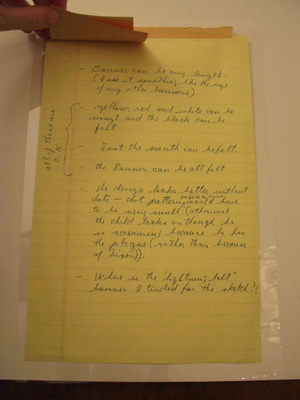 - Banner can be any length
(I see it something like the size
of my other banners).
- yellow, red and white can be
vinyl and the black can be
felt
all of these are
O.K.
- Just the mouth can be felt
- The Banner can be all felt
- The design looks better without
dots — dot pattern would have
to be very small (otherwise
the child looks as though he
is screaming because he has
the plague (rather than because
of Nixon)).
- Where is the "lightning bolt"
banner I traded for the sketch?